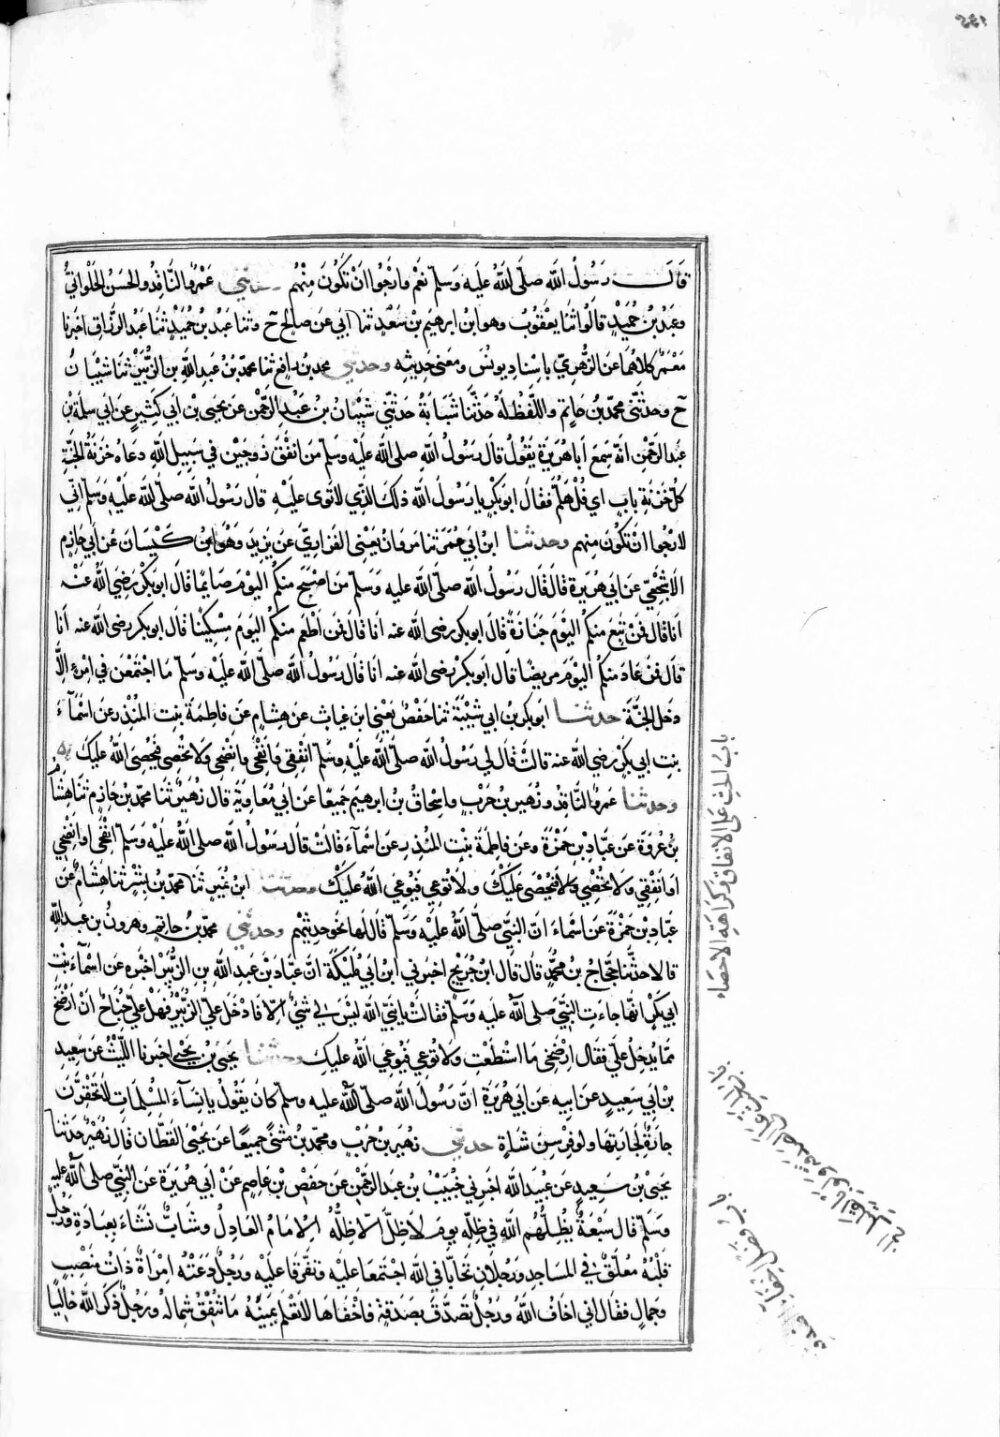 قالــــ رَسُولُ اللَّه صلَّى اللَّهُ عليَه وَسَلَّم نعَم وارجُوا انْ تكُونَ مِنْهُم حدثني عَمْرٌو النَّاقِدُ والحسَنُ الحُلْوانيُّ
وعَبْدُ بْن حُمَيْدٍ قالُوا ثنا يعْقُوبُ وهو ابْن ابرهيم بْن سَعْدٍ ثنا أبي عن صالح ح وثنا عبد بن حُمَيْدٍ ثنا عبد الرزَّاق اخبرنا
مَعْمَرٌ كلاهما عن الزُّهريِّ باِسنادِ يونُسَ ومعنى حَديثِهِ وحدثني محمد بن رافع ثنا محمّد بْنُ عبدِ اللَّهِ بن الزُّبَيْر ثنا شيْبَانُ
ح وحدَّثني محمّد بْنُ حاتِم واللَّفظ لهُ حدَّثنا شَبَابَةُ حدَّثني شيْبَانُ بنُ عَبدِ الرَّحْمٰن عن يحيى بن ابي كَثيرٍ عن ابي سلمَة بْن
عَبْد الرحمٰن انَّه سَمِعَ أباهُرَيرَةَ يَقُولُ قالَ رَسُولُ اللَّه صلى اللَّه عليْهِ وسلّم مَن انفَقَ زَوجَيْن في سَبِيل اللَّهِ دعَاهُ خَزَنَةُ الجَنَّةِ
كلُّ خَزَنَةِ بابٍ اي فُلُ هَلُمَّ فقالَ ابوبَكْرٍ يا رَسُولَ اللَّه ذلكَ الَّذِي لا تَوَى عَلَيْهِ قال رَسُولُ اللَّه صلّى اللَّه عليْهِ وسَلَّم انّي
لارجُوا انْ تكُونَ مِنهم وحدثنا ابن ابي عُمَرَ ثنا مَرْوانُ يَعْنِي الفَزارِيَّ عن يزيدَ وَهُوَ ابنُ كَيْسَانَ عَن أبي حَازم
الاشجعيِّ عن ابي هُرَيرَةَ قال قال رَسُولُ اللَّه صلَّى اللَّه عليه وَسَلَّم مَن اصْبَحَ مِنكُم اليَوْمَ صَايماً قال ابوبكْرٍ رَضيَ اللَّهُ عَنْه
أنا قال فَمَنْ تَبِعَ منكُم اليَوْمَ جَنازَةً قال ابوبكر رضي اللَّه عنه انا قال فمَن أطْعَمَ مِنكُم اليَوم مِسْكيناً قال ابوبكر رضي اللَّه عنه أنا
قالَ فمَن عَادَ منكُم اليَوْمَ مرِيضًا قال أبوبكرٍ رضي اللَّه عنه انا قال رَسُولُ اللَّه صلّى اللَّه علَيْه وسَلّم مَا اجْتَمَعْنَ في امْرِءٍ الَّا
دخل الجَنَّةَ حدثنا ابوبكر بْن ابي شَيْبَةَ ثنا حَفصٌ يَعْني ابن غياث عن هِشام عن فاطمَةَ بنتِ المُنْذِر عن اسْمَآءَ
بِنتِ ابي بكرٍ رضي اللَّه عنه قالت قال لي رَسُولُ اللَّه صلَّى اللَّه عليْهِ وسَلّم انْفِقي وانْفَحِي وانضحي ولا تُحْصِي فيُحْصِيَ اللَّهُ عليك
وحدثنا عمرٌو النَّاقِدُ وزُهَيرُ بْن حَرْبٍ واسحاقُ بْن ابرهيم جَميعًا عن ابي مُعَاوِيَةَ قال زُهَيرٌ ثنا محمّد بْن خازِم ثنا هشامُ
بْنُ عُروَةَ عن عبَّادِ بْن حَمْزَةَ وعن فاطِمَةَ بِنْتِ المُنْذِر عن اسْمَآءَ قالَتْ قال رَسُولُ اللَّه صلى اللَّه عليْه وسَلّم انْفَحِي او انْضَحِي
او انْفِقِي ولا تُحْصِي فيُحْصِيَ اللَّه عَلَيْكِ ولا تُوعي فيُوعِيَ اللَّهُ عليك وحدثنا ابن نُمَيْرٍ ثنا محمّد بْن بِشْر ثنا هشامٌ عن
عبّادِ بْن حَمْزَةَ عن اسْماءَ انّ النبيَّ صلَّى اللَّه عليْهِ وسَلّم قال لها نحو حديثِهم وحدثني محمّد بْن حاتِم وهرون بن عبد اللَّه
قالا حدَّثنا حَجَّاجُ بْن محمَّدٍ قال قال ابن جُرَيْجٍ اخبرني ابن ابي مُلَيْكَةَ انَّ عَبّادَ بْنَ عَبدِ اللَّه بن الزُّبَيْر اخبَرَه عن اسْمَآءَ بِنْتِ
ابي بكرٍ انَّها جاءَتِ النَّبيَّ صلى اللَّه عليه وسَلَّم فقالَتْ يا نَبيَّ اللَّه لَيْسَ لي شيءٌ الّا مَا ادخَلَ عليَّ الزُّبَيْرُ فهَلْ عليَّ جُنَاحٌ انْ ارْضَخَ
ممّا يُدْخِلُ عليَّ فقال ارْضَخي ما اسْتَطَعْتِ ولا تُوعي فيُوعيَ اللَّه عليك وحدثنا يحيَى بْن يَحْيَى اخبرنا اللَّيْثُ عن سَعيدِ
بْن ابي سَعِيدٍ عن ابيهِ عن ابي هُرَيرَةَ انَّ رَسُولَ اللَّه صلَّى اللَّه عليه وسلم كان يَقُولُ يا نِسَآءَ المُسْلمَاتِ لا تحْقِرَنَّ
جارَةٌ لِجَارَتِهَا ولو فِرْسِنَ شَاةٍ حدثني زهَيرُ بْن حَرْبٍ ومحمّد بْن مُثَنَّى جَمِيعًا عَن يَحْيَى القَطَّان قال زُهَيْرٌ حدثنا
يَحْيَى بْن سَعِيدٍ عن عُبَيدِ اللَّه اخبَرني خُبَيْبُ بْن عَبد الرحمٰن عن حَفصِ بْن عاصِمٍ عَنْ ابي هُرَيرَةَ عن النَّبيّ صلى اللَّه عليهِ
وسَلّم قال سَبْعَةٌ يُظِلُّهُم اللَّهُ في ظِلِّهِ يومَ لا ظِلَّ الّا ظِلُّهُ الاِمَامُ العَادِلُ وشَابٌّ نَشَاءَ بِعِبَادَةِ ورَجُلٌ
قلبُهُ مُعَلَّقٌ في المَسَاجِدِ ورَجُلانِ تحَابّا في اللَّه اجْتَمعَا عليْه وتفَرَّقَا عَلَيْهِ ورَجُلٌ دعَتْهُ امْرَاةٌ ذاتُ منْصِبٍ
وجمالٍ فقال اني اخَافُ اللَّهَ ورَجُلٌ تصَدَّقَ بصَدَقَةٍ فاخْفاها لا تعْلَمَ يَمِينُهُ مَا تنْفِقُ شِمالُه ورَجُلٌ ذكَر اللَّه خالِيًا
بابُ الحثِّ عَلَى الانفاق وكراهَةِ الاحصَاء